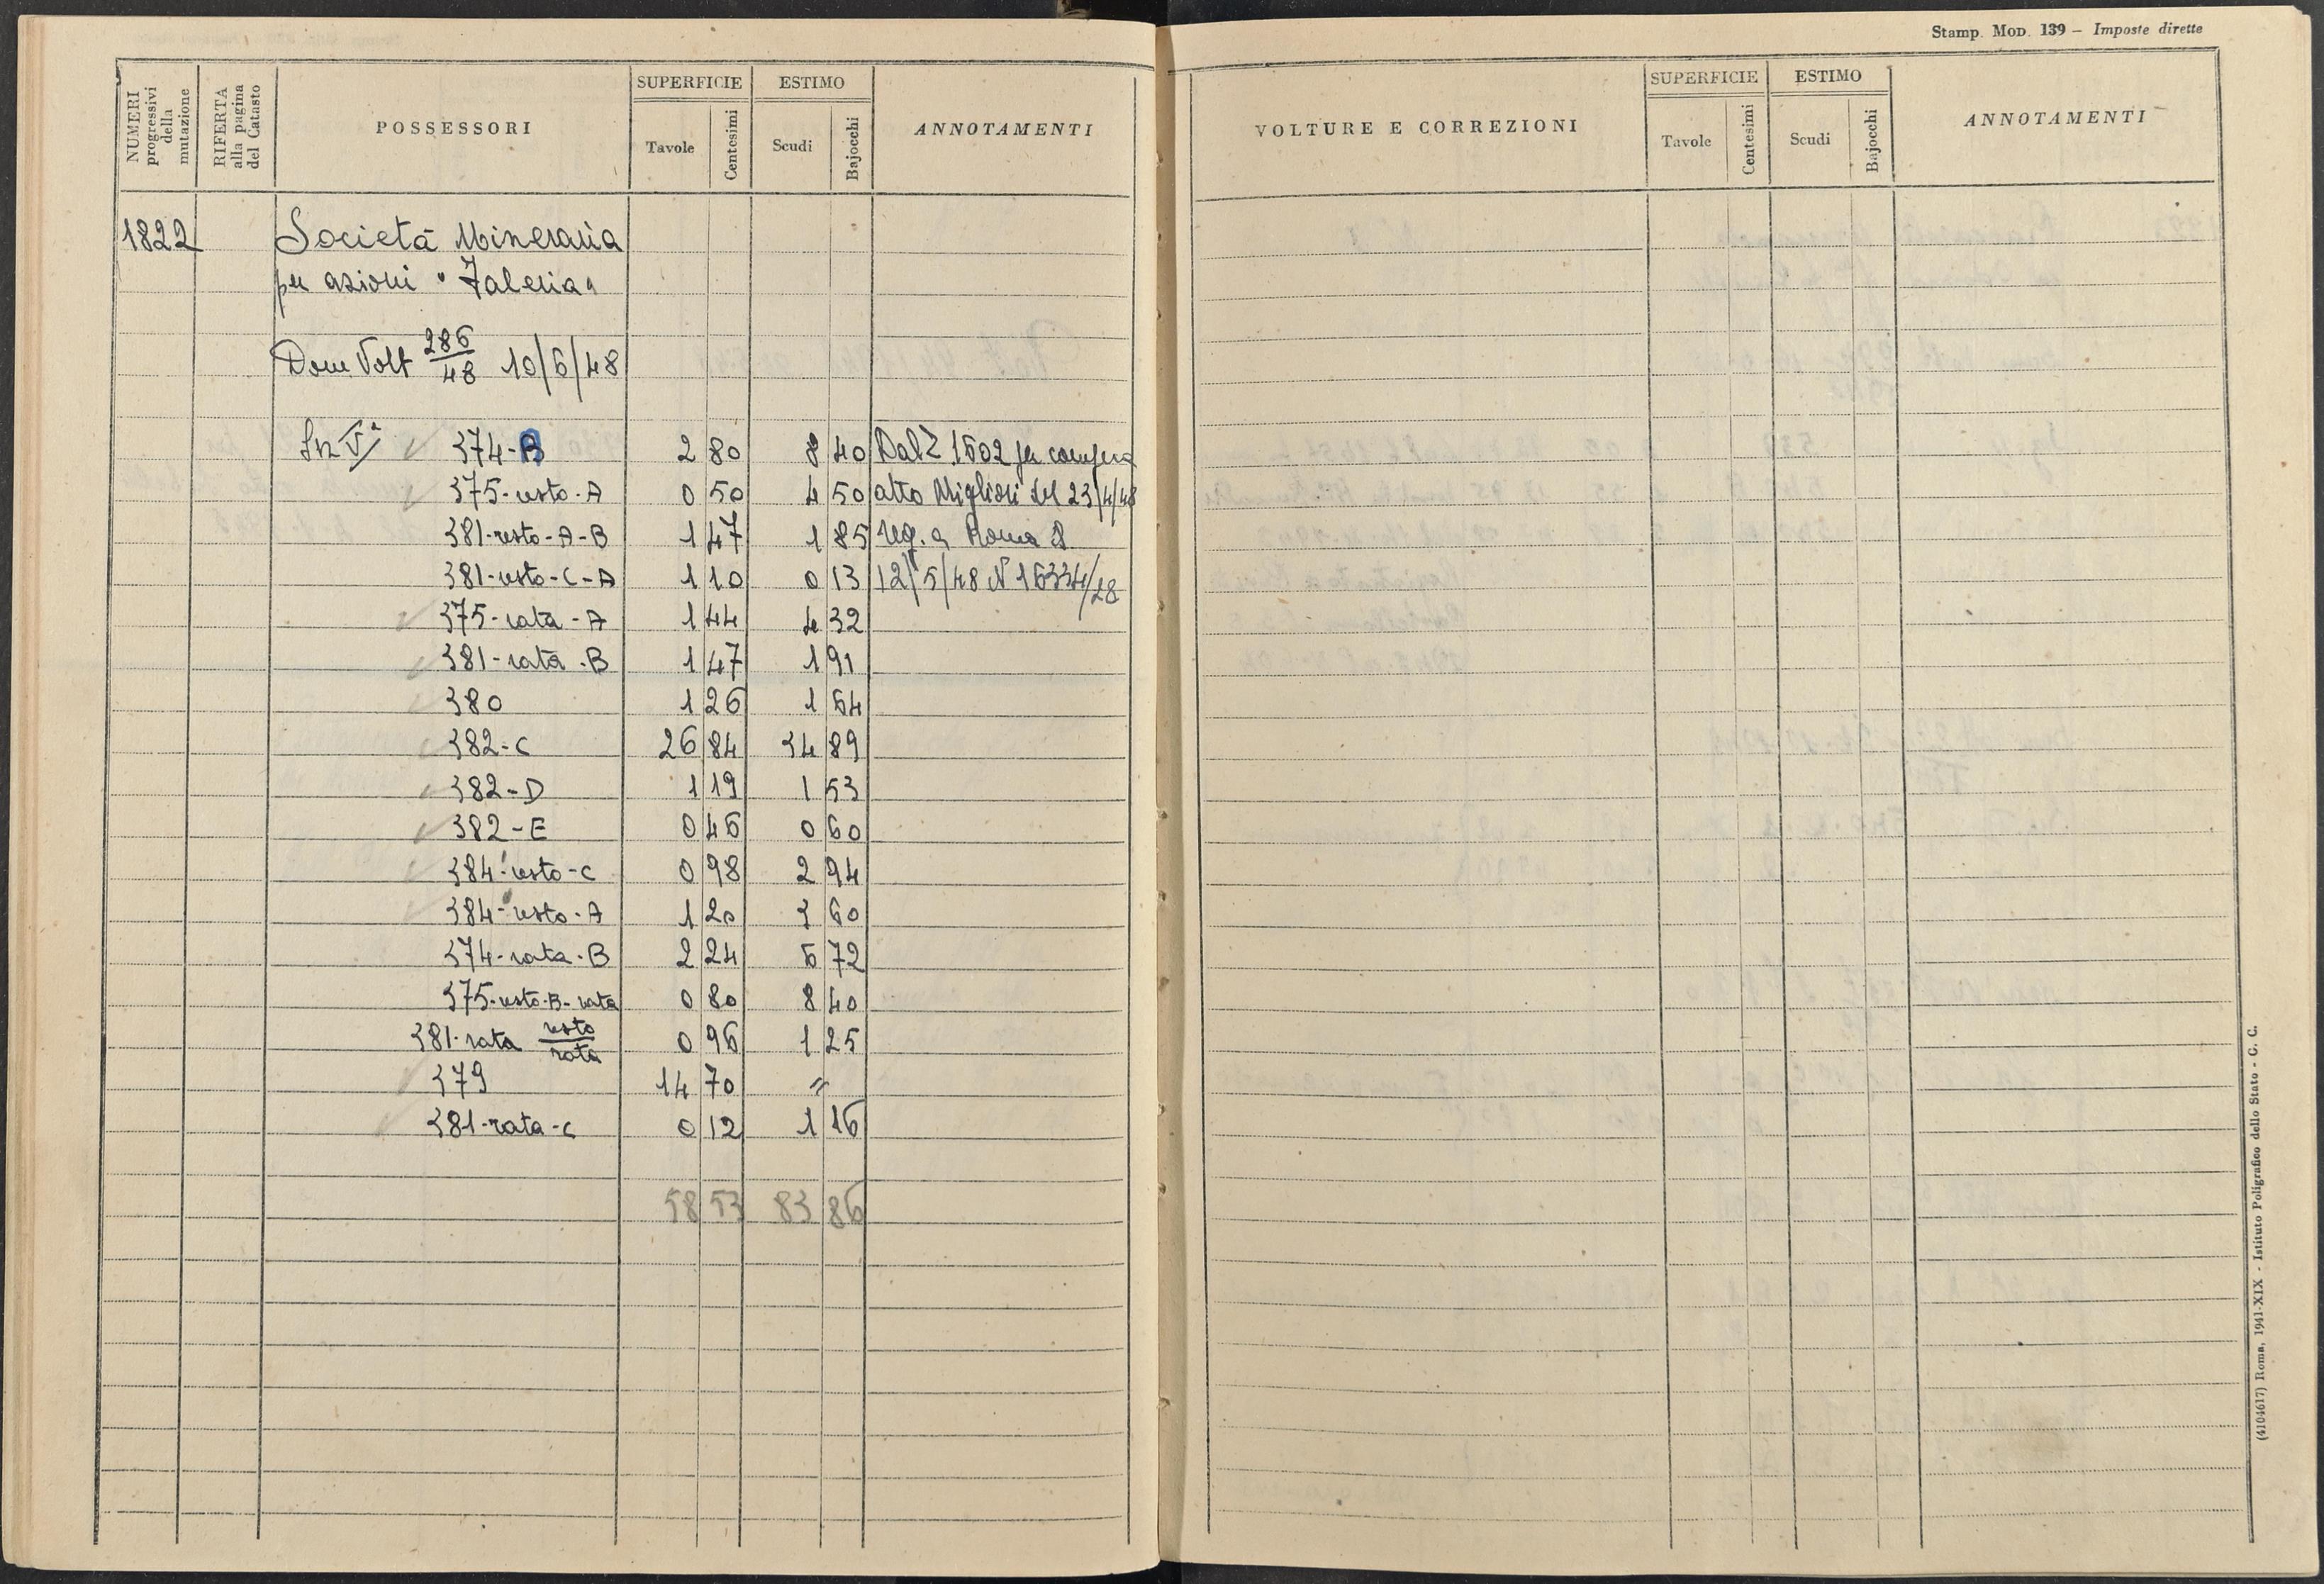 Stamp. MOD. 139 – Imposte dirette
NUMERI progressivi della mutazione
RIFERTA alla pagina del Catasto
POSSESSORI
SUPERFICIE
Tavole Centesimi
ESTIMO
Scudi Bajocchi
ANNOTAMENTI
1822 Società Mineraria
per azioni "Faleria"
Dom Volt 286/48 10/6/48
374-B 2 80 8 40 Dal 1502 per compra
375-resto-A 0 50 4 50 atto Migliori del 23/4/48
381-resto-A-B 1 47 1 85 reg. a Roma
381-resto-C-A 1 10 0 13 12/5/48 N 16334/28
375-rata-A 1 44 4 32
381-rata-B 1 47 1 91
380 1 26 1 64
382-C 26 84 34 89
382-D 1 19 1 53
382-E 0 46 0 60
384-resto-C 0 98 2 94
384-resto-A 1 20 3 60
374-rata-B 2 24 6 72
375-resto-B-rata 0 80 8 40
381-rata resto/rata 0 96 1 25
379 14 70 "
381-rata-C 0 12 1 16
58 53 83 86
VOLTURE E CORREZIONI
SUPERFICIE
Tavole Centesimi
ESTIMO
Scudi Bajocchi
ANNOTAMENTI
(4104617) Roma, 1941-XIX - Istituto Poligrafico dello Stato - G. C.